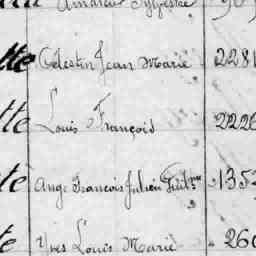 Sylvestre
tte Célestin Jean Marie 2281
tte Louis François 222
te Ange François Julien 135
te Yves Louis Marie 260